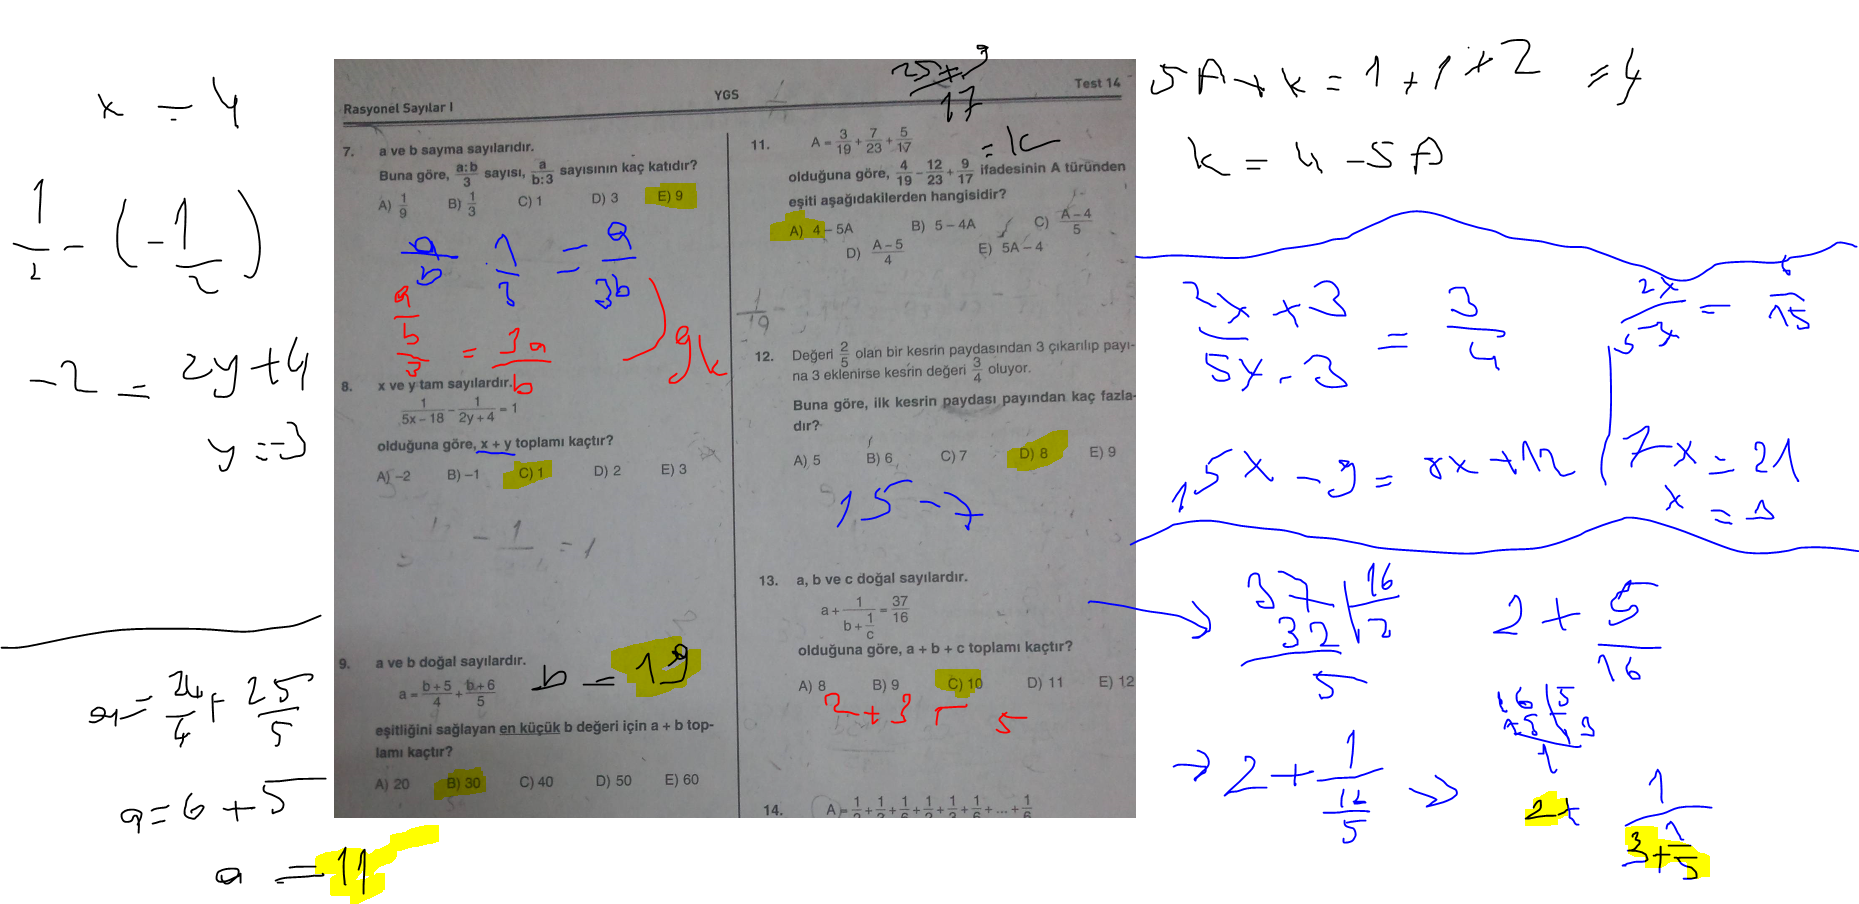 x = 4
1/2 - (-1/2)
-2 = 2y+4
y = -3
a = 24/4 + 25/5
a = 6 + 5
a = 11
Rasyonel Sayılar I
YGS
Test 14
7. a ve b sayma sayılarıdır.
Buna göre, a:b/3 sayısı, a/b:3 sayısının kaç katıdır?
A) 1/9 B) 1/3 C) 1 D) 3 E) 9
a/b · 1/3 = a/3b
a/b/3 = 3a/b
9k
8. x ve y tam sayılardır.
1/5x – 18 - 1/2y + 4 = 1
olduğuna göre, x + y toplamı kaçtır?
A) –2 B) –1 C) 1 D) 2 E) 3
- 1 = 1
9. a ve b doğal sayılardır.
b = 19
a = b+5/4 + b+6/5
eşitliğini sağlayan en küçük b değeri için a + b top-
lamı kaçtır?
A) 20 B) 30 C) 40 D) 50 E) 60
25+9/17
11. A = 3/19 + 7/23 + 5/17
= k
olduğuna göre, 4/19 - 12/23 + 9/17 ifadesinin A türünden
eşiti aşağıdakilerden hangisidir?
A) 4 – 5A B) 5 – 4A C) A – 4/5
D) A – 5/4 E) 5A – 4
1/19 -
12. Değeri 2/5 olan bir kesrin paydasından 3 çıkarılıp payı-
na 3 eklenirse kesrin değeri 3/4 oluyor.
Buna göre, ilk kesrin paydası payından kaç fazla-
dır?
A) 5 B) 6 C) 7 D) 8 E) 9
15 - 7
13. a, b ve c doğal sayılardır.
a + 1/b + 1/c = 37/16
olduğuna göre, a + b + c toplamı kaçtır?
A) 8 B) 9 C) 10 D) 11 E) 12
2 + 3 5
14. A = 1/2 + 1/2 + 1/6 + 1/2 + 1/3 + 1/6 + ... + 1/6
5A + k = 1 + 1 + 2 = 4
k = 4 - 5A
2x + 3/5x - 3 = 3/4
2x/5x = 6/15
15x - 9 = 8x + 12
7x = 21
x = 3
37 16
32 2
5
2 + 5/16
16 5
15 3
1
2 + 1/16/5
2 + 1/3 + 1/5